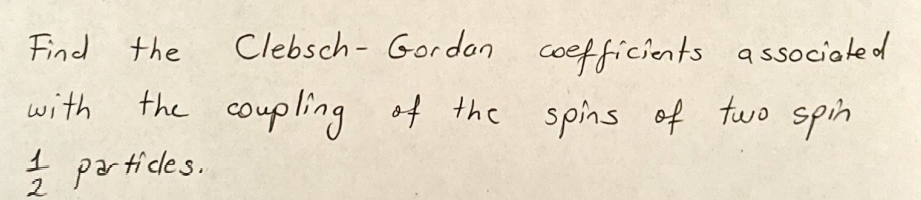 Find the Clebsch-Gordan coefficients associated
with the coupling of the spins of two spin
1/2 particles.